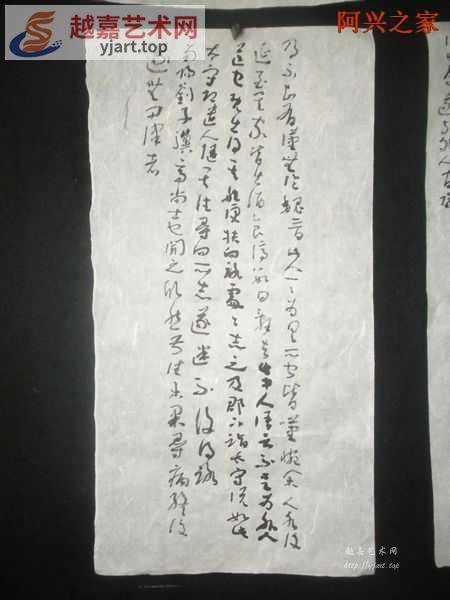 越嘉艺术网
yjart.top
阿兴之家
乃不知有漢無論魏晉此人一々為具言所聞皆嘆惋余人各復
延至其家皆出酒食停數日辭去此中人語云不足為外人
道也既出得其船便扶向路處々志之及郡下詣太守說如此
太守即遣人隨其往尋向所志遂迷不復得路
南陽劉子驥高尚士也聞之欣然規往未果尋病終後
遂無問津者
越嘉艺术网
http://yjart.top